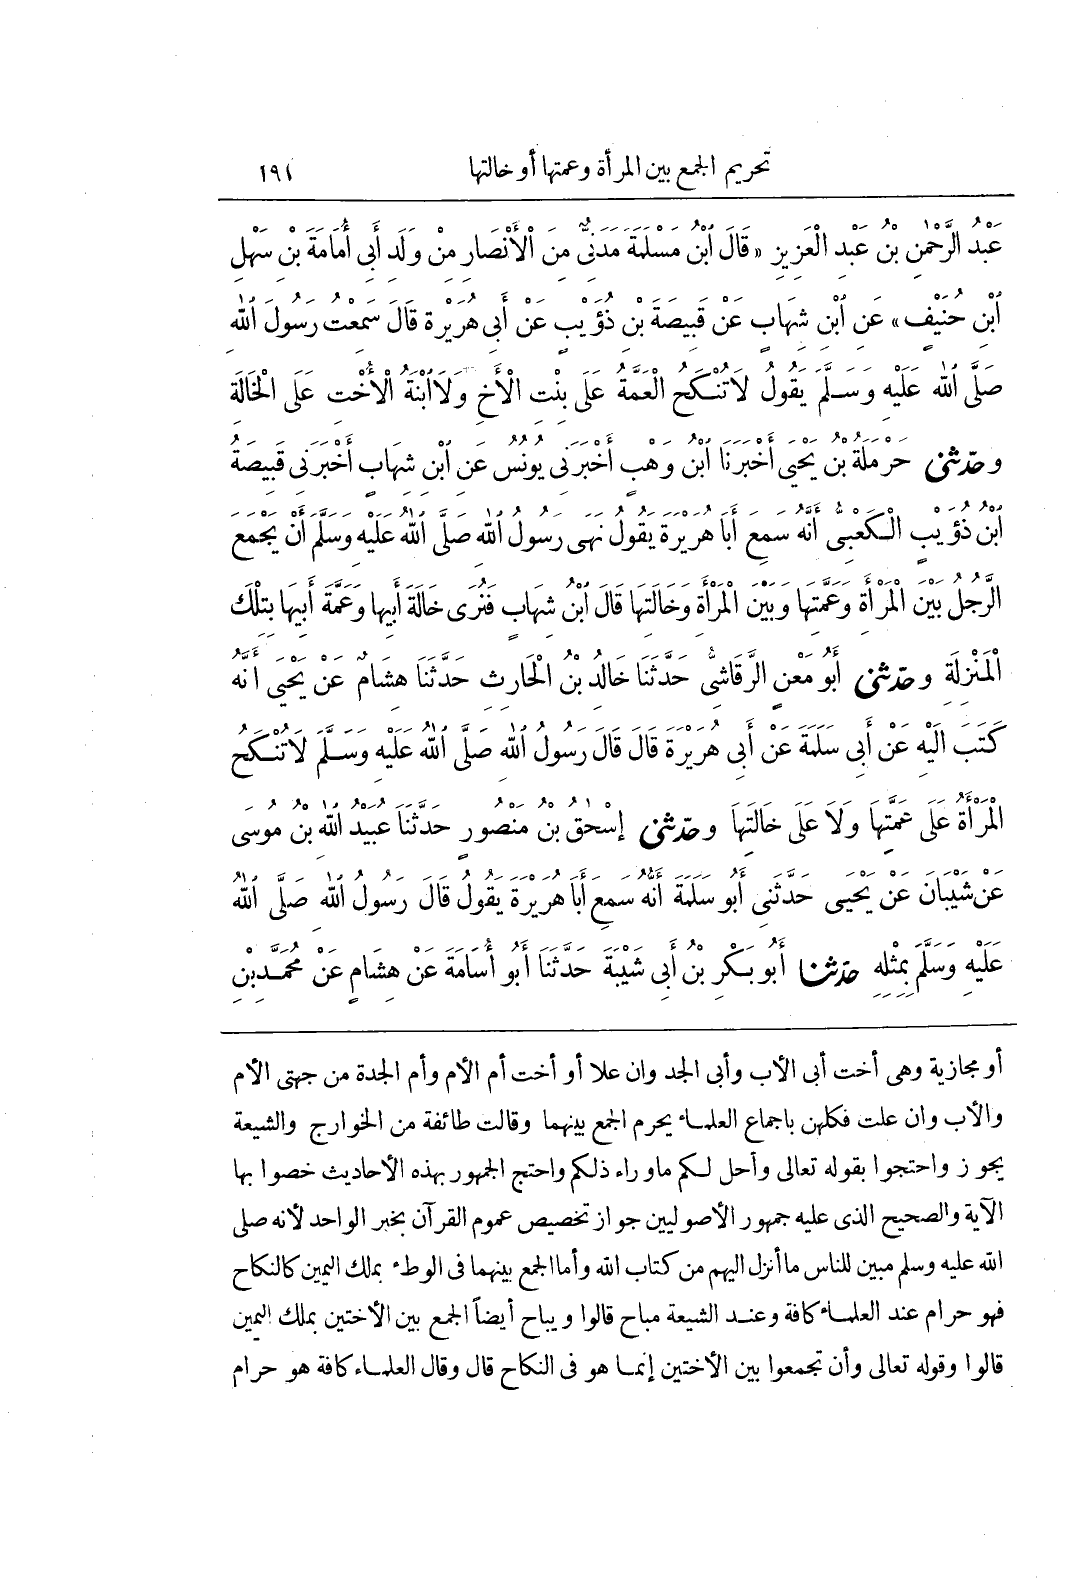 تحريم الجمع بين المرأة وعمتها أو خالتها ١٩١
عَبْدُ الرَّحْمٰنِ بْنُ عَبْدِ الْعَزِيزِ «قَالَ ابْنُ مَسْلَمَةَ مَدَنِيٌّ مِنَ الْأَنْصَارِ مِنْ وَلَدِ أَبِي أُمَامَةَ بْنِ سَهْلِ
ابْنِ حُنَيْفٍ» عَنِ ابْنِ شِهَابٍ عَنْ قَبِيصَةَ بْنِ ذُؤَيْبٍ عَنْ أَبِي هُرَيْرَةَ قَالَ سَمِعْتُ رَسُولَ اللهِ
صَلَّى اللهُ عَلَيْهِ وَسَلَّمَ يَقُولُ لَا تُنْكَحُ الْعَمَّةُ عَلَى بِنْتِ الْأَخِ وَلَا ابْنَةُ الْأُخْتِ عَلَى الْخَالَةِ
وحدثنى حَرْمَلَةُ بْنُ يَحْيَى أَخْبَرَنَا ابْنُ وَهْبٍ أَخْبَرَنِي يُونُسُ عَنِ ابْنِ شِهَابٍ أَخْبَرَنِي قَبِيصَةُ
ابْنُ ذُؤَيْبٍ الْكَعْبِيُّ أَنَّهُ سَمِعَ أَبَا هُرَيْرَةَ يَقُولُ نَهَى رَسُولُ اللهِ صَلَّى اللهُ عَلَيْهِ وَسَلَّمَ أَنْ يَجْمَعَ
الرَّجُلُ بَيْنَ الْمَرْأَةِ وَعَمَّتِهَا وَبَيْنَ الْمَرْأَةِ وَخَالَتِهَا قَالَ ابْنُ شِهَابٍ فَنُرَى خَالَةَ أَبِيهَا وَعَمَّةَ أَبِيهَا بِتِلْكَ
الْمَنْزِلَةِ وحدثنى أَبُو مَعْنٍ الرَّقَاشِيُّ حَدَّثَنَا خَالِدُ بْنُ الْحَارِثِ حَدَّثَنَا هِشَامٌ عَنْ يَحْيَى أَنَّهُ
كَتَبَ إِلَيْهِ عَنْ أَبِي سَلَمَةَ عَنْ أَبِي هُرَيْرَةَ قَالَ قَالَ رَسُولُ اللهِ صَلَّى اللهُ عَلَيْهِ وَسَلَّمَ لَا تُنْكَحُ
الْمَرْأَةُ عَلَى عَمَّتِهَا وَلَا عَلَى خَالَتِهَا وحدثنى إِسْحٰقُ بْنُ مَنْصُورٍ حَدَّثَنَا عُبَيْدُ اللهِ بْنُ مُوسَى
عَنْ شَيْبَانَ عَنْ يَحْيَى حَدَّثَنِي أَبُو سَلَمَةَ أَنَّهُ سَمِعَ أَبَا هُرَيْرَةَ يَقُولُ قَالَ رَسُولُ اللهِ صَلَّى اللهُ
عَلَيْهِ وَسَلَّمَ بِمِثْلِهِ حدثنا أَبُو بَكْرِ بْنُ أَبِي شَيْبَةَ حَدَّثَنَا أَبُو أُسَامَةَ عَنْ هِشَامٍ عَنْ مُحَمَّدِ بْنِ
أو مجازية وهى أخت أبى الأب وأبى الجد وان علا أو أخت أم الأم وأم الجدة من جهتى الأم
والأب وان علت فكلهن باجماع العلماء يحرم الجمع بينهما وقالت طائفة من الخوارج والشيعة
يجوز واحتجوا بقوله تعالى وأحل لكم ماوراء ذلكم واحتج الجمهور بهذه الأحاديث خصوا بها
الآية والصحيح الذى عليه جمهور الأصوليين جواز تخصيص عموم القرآن بخبر الواحد لأنه صلى
الله عليه وسلم مبين للناس ما أنزل اليهم من كتاب الله وأما الجمع بينهما فى الوطء بملك اليمين كالنكاح
فهو حرام عند العلماء كافة وعند الشيعة مباح قالوا ويباح أيضاً الجمع بين الأختين بملك اليمين
قالوا وقوله تعالى وأن تجمعوا بين الأختين إنما هو فى النكاح قال وقال العلماء كافة هو حرام